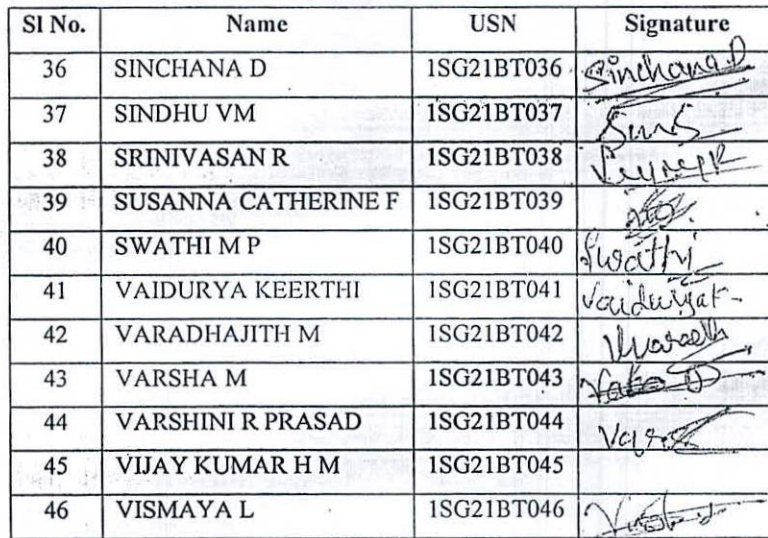 Sl No. Name USN Signature
36 SINCHANA D 1SG21BT036 Sinchana.D
37 SINDHU VM 1SG21BT037
38 SRINIVASAN R 1SG21BT038
39 SUSANNA CATHERINE F 1SG21BT039
40 SWATHI M P 1SG21BT040 Swathi
41 VAIDURYA KEERTHI 1SG21BT041
42 VARADHAJITH M 1SG21BT042
43 VARSHA M 1SG21BT043
44 VARSHINI R PRASAD 1SG21BT044
45 VIJAY KUMAR H M 1SG21BT045
46 VISMAYA L 1SG21BT046